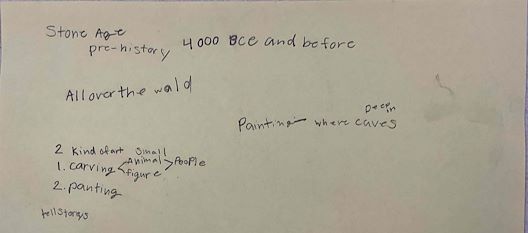 Stone Age
pre-history 4000 BCE and before
All over the wald
Painting — where Deep in caves
2 Kind of art Small
1. carving < Animal > People
figure
2. panting
tell storys